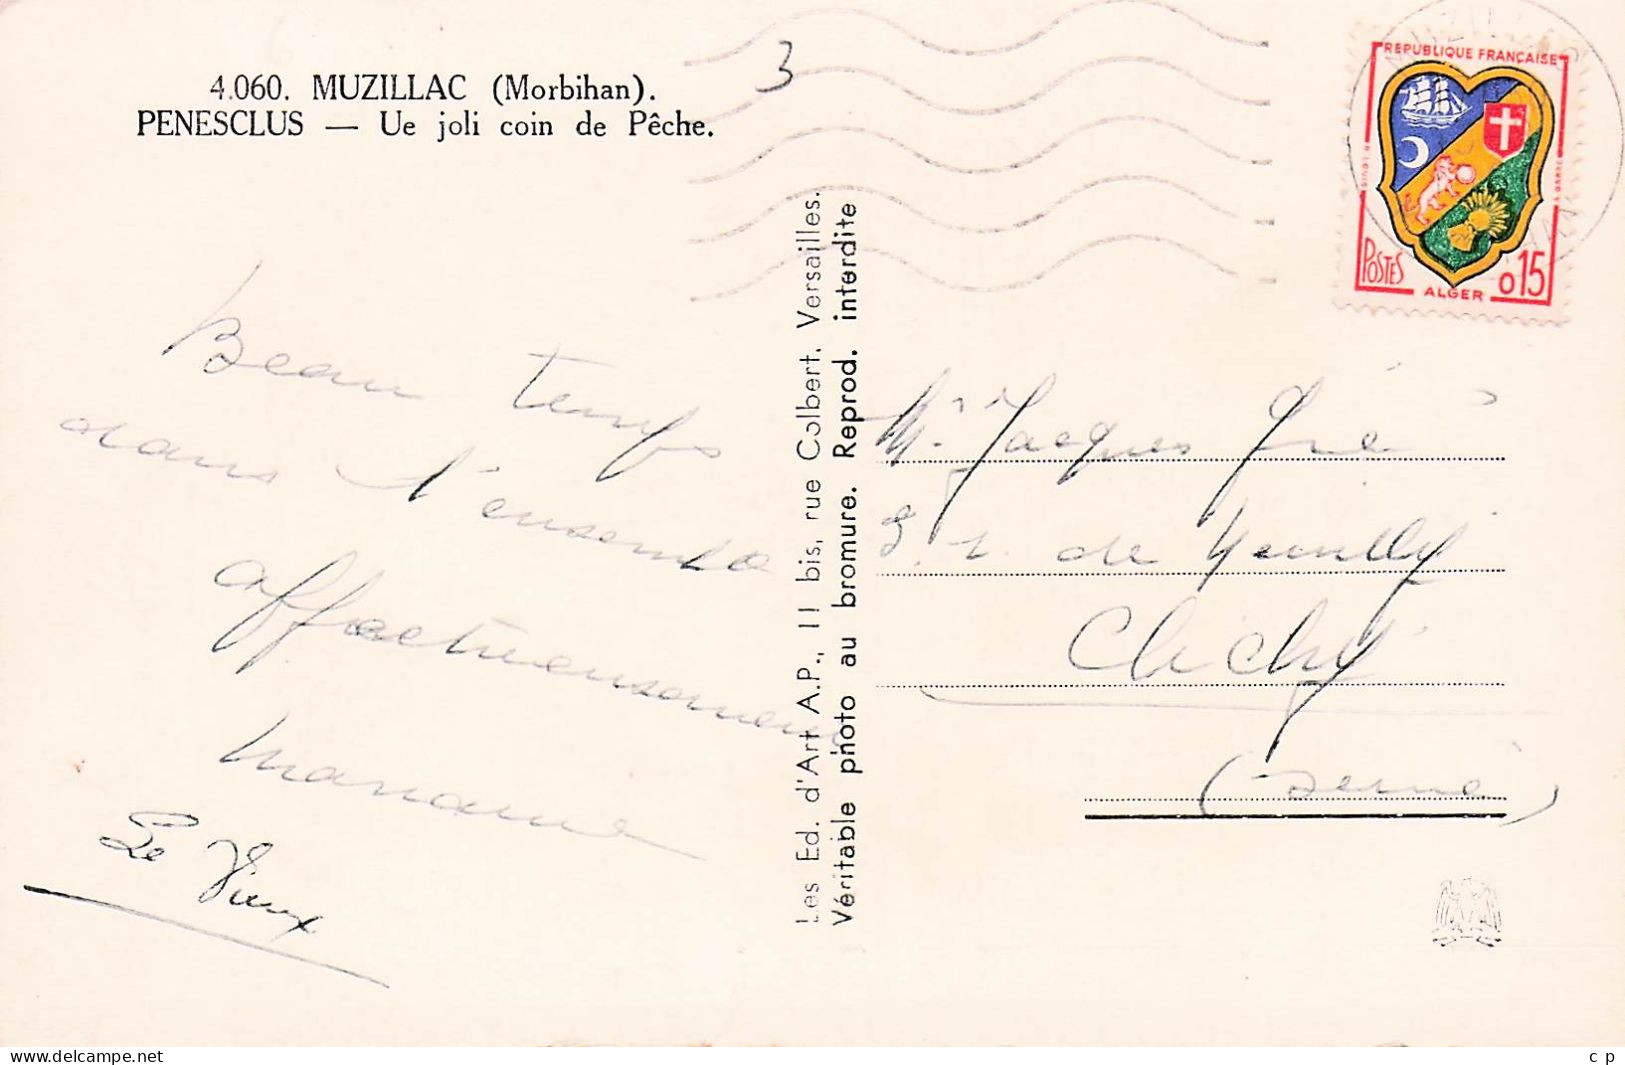 4.060. MUZILLAC (Morbihan).
PENESCLUS — Ue joli coin de Pêche.
3
REPUBLIQUE FRANÇAISE
POSTES
ALGER
0,15
MUZILLAC
Beau temps
dans l'ensemble
affectueusement
Le Vieux
Les Ed. d'Art A.P., 11 bis, rue Colbert. Versailles.
Véritable photo au bromure. Reprod. interdite
Mr Jacques
r. de Neuilly
Clichy
(Seine)
www.delcampe.net
c p